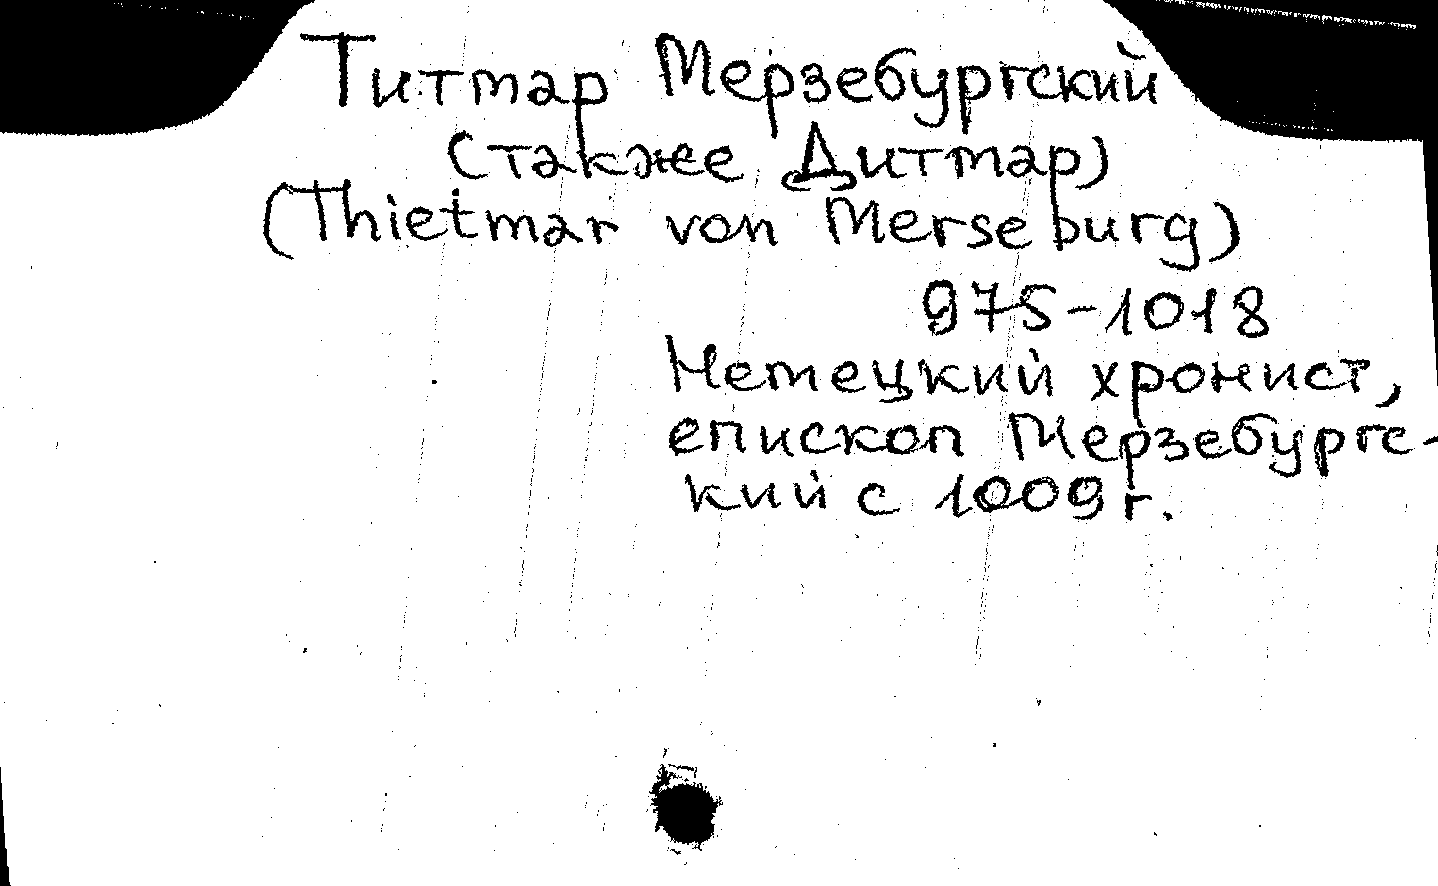 Титмар Мерзебургский
(также Дитмар)
(Thietmar von Merseburg)
975-1018
Немецкий хронист,
епископ Мерзебургс-
кий с 1009 г.